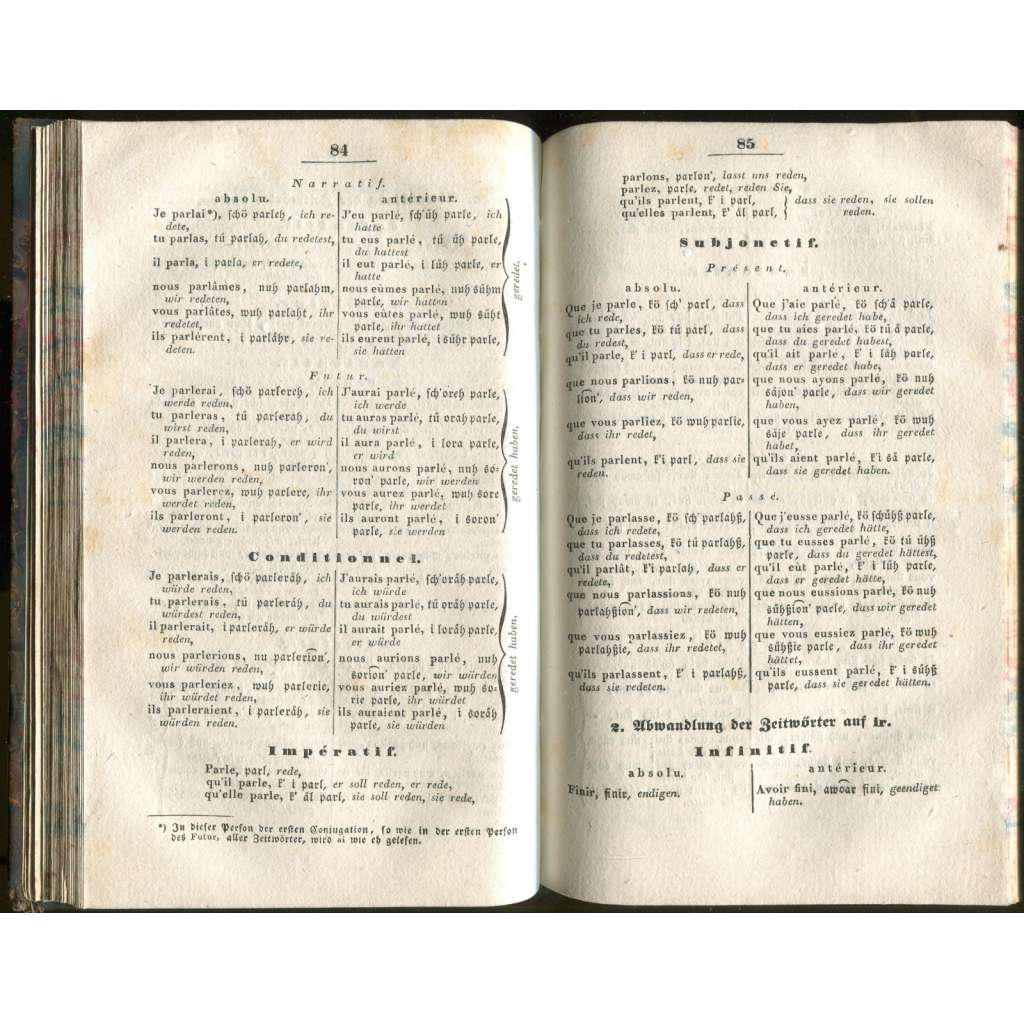 84
Narratif.
absolu.
Je parlai*), schö parleh, ich re-
dete,
tu parlas, tú parlah, du redetest,
il parla, i parla, er redete,
nous parlâmes, nuh parlahm,
wir redeten,
vous parlâtes, wuh parlaht, ihr
redetet,
ils parlèrent, i parlähr, sie re-
deten.
antérieur.
J'eu parlé, sch'üh parle, ich
hatte
tu eus parlé, tú úh parle,
du hattest
il eut parlé, i lúh parle, er
hatte
nous eûmes parlé, nuh súhm
parle, wir hatten
vous eûtes parlé, wuh súht
parle, ihr hattet
ils eurent parlé, i súhr parle,
sie hatten
geredet.
Futur.
Je parlerai, schö parlereh, ich
werde reden,
tu parleras, tú parlerah, du
wirst reden,
il parlera, i parlerah, er wird
reden,
nous parlerons, nuh parleron',
wir werden reden,
vous parlerez, wuh parlere, ihr
werdet reden,
ils parleront, i parleron', sie
werden reden.
J'aurai parlé, sch'oreh parle,
ich werde
tu auras parlé, tú orah parle,
du wirst
il aura parlé, i lora parle,
er wird
nous aurons parlé, nuh so-
ron' parle, wir werden
vous aurez parlé, wuh sore
parle, ihr werdet
ils auront parlé, i soron'
parle, sie werden
geredet haben.
Conditionnel.
Je parlerais, schö parleräh, ich
würde reden,
tu parlerais, tú parleräh, du
würdest reden,
il parlerait, i parleräh, er würde
reden,
nous parlerions, nu parlerion',
wir würden reden,
vous parleriez, wuh parlerie,
ihr würdet reden,
ils parleraient, i parleräh, sie
würden reden.
J'aurais parlé, sch'oräh parle,
ich würde
tu aurais parlé, tú oräh parle,
du würdest
il aurait parlé, i loräh parle,
er würde
nous aurions parlé, nuh
sorion' parle, wir würden
vous auriez parlé, wuh so-
rie parle, ihr würdet
ils auraient parlé, i soräh
parle, sie würden
geredet haben.
Impératif.
Parle, parl, rede,
qu'il parle, k' i parl, er soll reden, er rede,
qu'elle parle, k' äl parl, sie soll reden, sie rede,
*) In dieser Person der ersten Conjugation, so wie in der ersten Person
des Futur, aller Zeitwörter, wird ai wie eh gelesen.
85
parlons, parlon', lasst uns reden,
parlez, parle, redet, reden Sie,
qu'ils parlent, k' i parl,
qu'elles parlent, k' äl parl,
dass sie reden, sie sollen
reden.
Subjonctif.
Présent.
absolu.
Que je parle, kö sch' parl, dass
ich rede,
que tu parles, kö tú parl, dass
du redest,
qu'il parle, k' i parl, dass er rede,
que nous parlions, kö nuh par-
lion', dass wir reden,
que vous parliez, kö wuh parlie,
dass ihr redet,
qu'ils parlent, k'i parl, dass sie
reden.
antérieur.
Que j'aie parlé, kö sch'ä parle,
dass ich geredet habe,
que tu aies parlé, kö tú ä parle,
dass du geredet habest,
qu'il ait parlé, k' i läh parle,
dass er geredet habe,
que nous ayons parlé, kö nuh
säjon' parle, dass wir geredet
haben,
que vous ayez parlé, kö wuh
säje parle, dass ihr geredet
habet,
qu'ils aient parlé, k'i sä parle,
dass sie geredet haben.
Passé.
Que je parlasse, kö sch' parlahß,
dass ich redete,
que tu parlasses, kö tú parlahß,
dass du redetest,
qu'il parlât, k'i parlah, dass er
redete,
que nous parlassions, kö nuh
parlahßion', dass wir redeten,
que vous parlassiez, kö wuh
parlahßie, dass ihr redetet,
qu'ils parlassent, k' i parlahß,
dass sie redeten.
Que j'eusse parlé, kö schúhß parle,
dass ich geredet hätte,
que tu eusses parlé, kö tú úhß
parle, dass du geredet hättest,
qu'il eût parlé, k' i lúh parle,
dass er geredet hätte,
que nous eussions parlé, kö nuh
súhßion' parle, dass wir geredet
hätten,
que vous eussiez parlé, kö wuh
súhßie parle, dass ihr geredet
hättet,
qu'ils eussent parlé, k' i súhß
parle, dass sie geredet hätten.
2. Abwandlung der Zeitwörter auf ir.
Infinitif.
absolu.
Finir, finir, endigen.
antérieur.
Avoir fini, awoar fini, geendiget
haben.